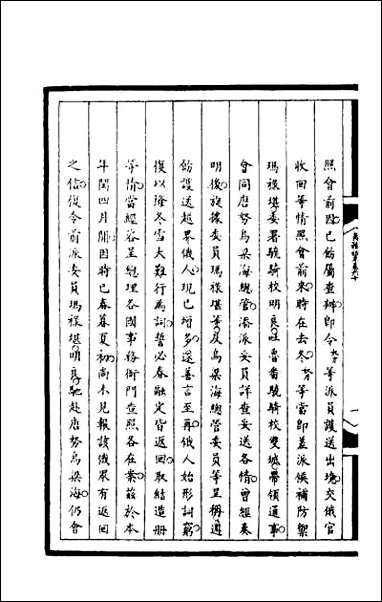 照會前因已飭屬查辦即令奴才等派員護送出境交俄官
收回等情照會前來時在去冬奴才等當即并派候補防禦
瑪祿堪委署驍騎校明良吐魯番驍騎校雙城帶領通事
會同唐努烏梁海總管湊派妥員詳查妥送各情曾經奏
明後旋據委員瑪祿堪等及烏梁海總管委員等呈稱遵
飭護送越界俄人現已增多返善言至再俄人始形詞窮
復以隆冬雪大難行為詞誓必春融定皆返回取結造冊
等情當經咨呈總理各國事務衙門查照各在案茲於本
年閏四月開因時已春暮夏初尚未見報該俄眾有返回
之信復令前派委員瑪祿堪明良馳赴唐努烏梁海仍會